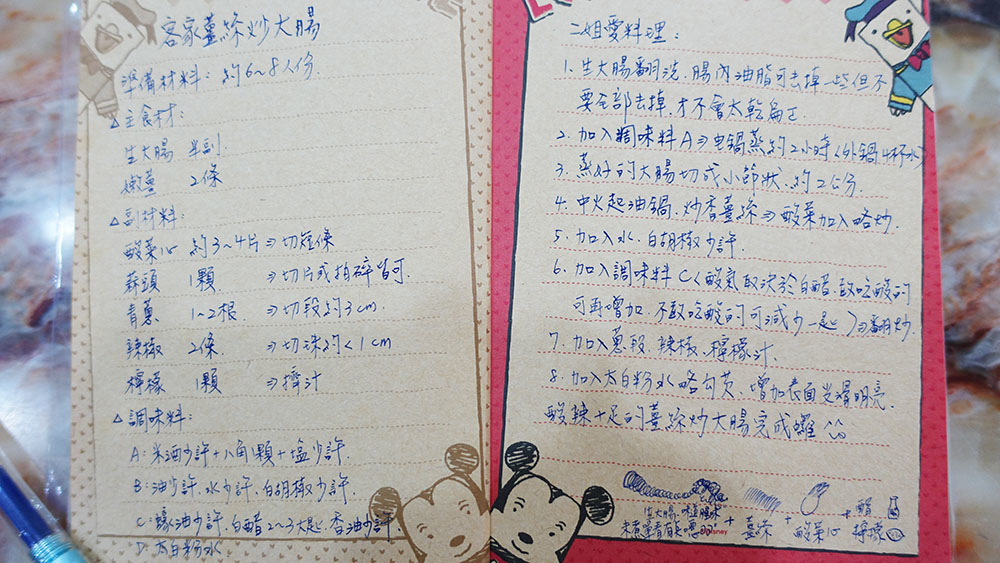 客家薑絲炒大腸
準備材料：約6~8人份
△主食材：
生大腸 半副
嫩薑 2條
△副材料：
酸菜心 約3~4片⇒切短條
蒜頭 1顆 ⇒切片或拍碎皆可.
青蔥 1~2根 ⇒切段約3cm
辣椒 2條 ⇒切珠約<1cm
檸檬 1顆 ⇒擠汁
△調味料：
A：米酒少許+八角1顆+塩少許.
B：油少許.水少許.白胡椒少許.
C：蠔油少許.白醋2~3大匙.香油少許.
D：太白粉水
二姐愛料理：
1. 生大腸翻洗.腸內油脂可去掉一些但不
要全部去掉.才不會太乾扁
2. 加入調味料A⇒电鍋蒸約2小時(外鍋4杯水)
3. 蒸好的大腸切成小節狀.約2公分.
4. 中火起油鍋.炒香薑絲⇒酸菜加入略炒.
5. 加入水.白胡椒少許
6. 加入調味料C(酸氣取決於白醋.敢吃酸的
可再增加.不敢吃酸的可減少一匙)⇒翻炒.
7. 加入蔥段.辣椒.檸檬汁.
8. 加入太白粉水略勾芡.增加表面光滑明亮.
酸辣十足的薑絲炒大腸完成囉
生大腸
Disney
+ 薑絲 + 酸菜心 + 醋 檸檬